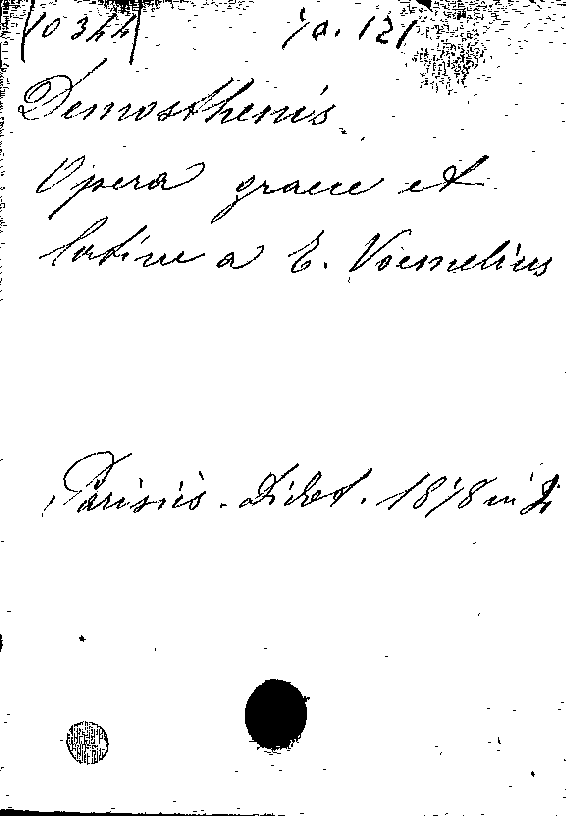 10344 ja. 121
Demosthenis
Opera graece et
latine a E. Voemelius
Parisiis. Didot. 1878 in